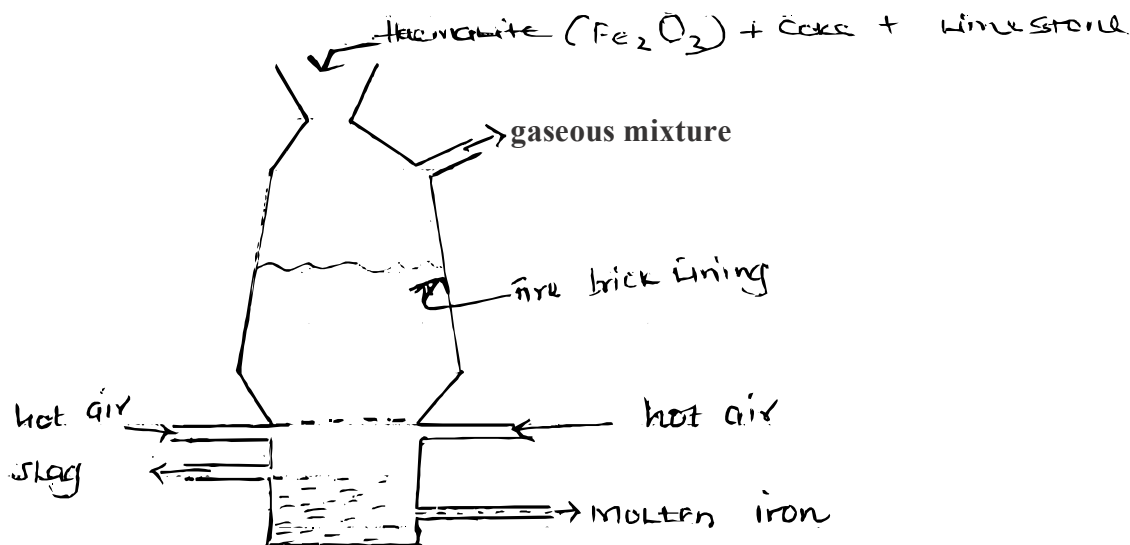 Haematite (Fe₂O₃) + Coke + Limestone
gaseous mixture
fire brick lining
hot air
hot air
slag
molten iron